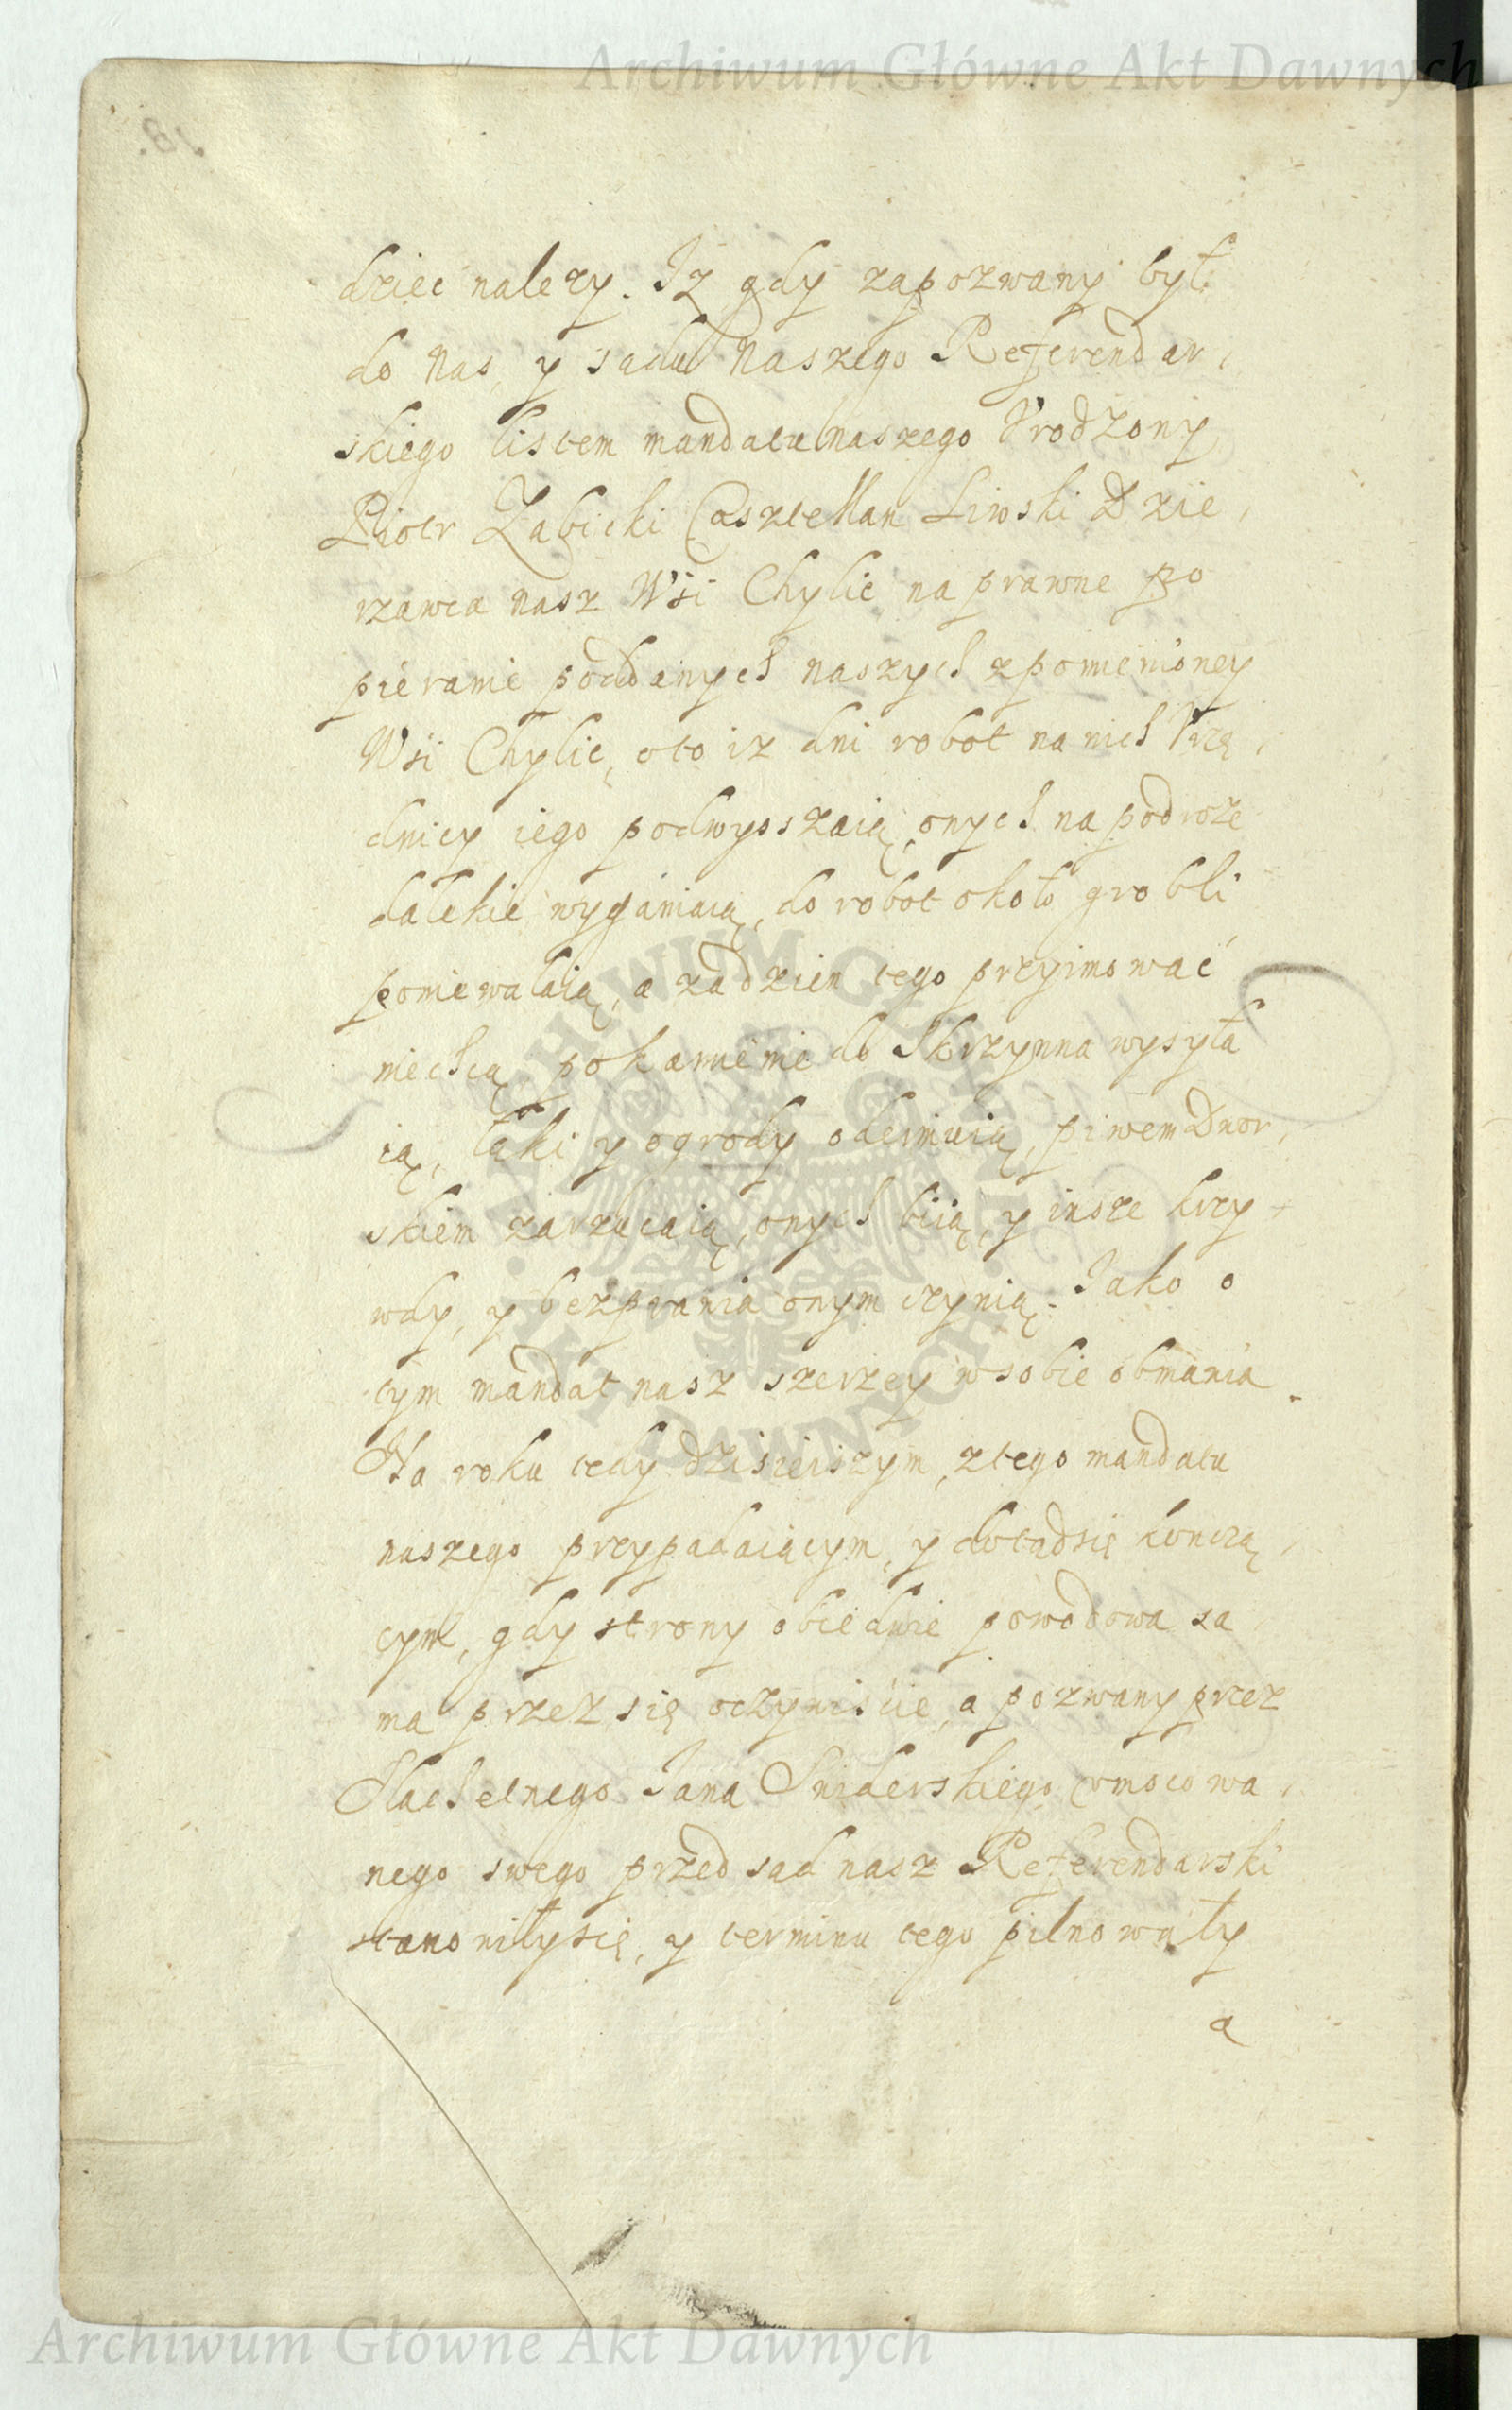 Archiwum Główne Akt Dawnych
dziec nalezy. Iz gdy zapozwany był
do nas, y sadu naszego Referendar,
skiego listem mandatu naszego Vrodzony
Piotr Zabicki Casztellan Liwski Dzie,
rzawca nasz Wsi Chylic na prawne po
pieranie poddanych naszych z pomienioney
Wsi Chylic, oto iz dni robot na nich Vrzę,
dnicy iego podwyższaią, onych na podroze
dalekie wyganiaią, do robot około grobli
poniewalaią, a za dzien tego przyimować
niechcą, po kamienie do Skrzynna wysyła
ią, łąki y ogrody odeimuią, piwem Dwor,
skiem zarzucaią, onych biią, y insze krzy
wdy, y bezprawia onym czynią. Iako o
tym mandat nasz szerzey w sobie obmawia.
Na roku tedy dzisieiszym, z tego mandatu
naszego przypadaiącym, y dotąd się kończą,
cym, gdy strony obiedwie powodowa sa
ma przez się oczywiście, a pozwany przez
Slachetnego Jana Sniderskiego vmocowa,
nego swego przed sad nasz Referendarski
stanowiły się, y terminu tego pilnowały
a
Archiwum Główne Akt Dawnych